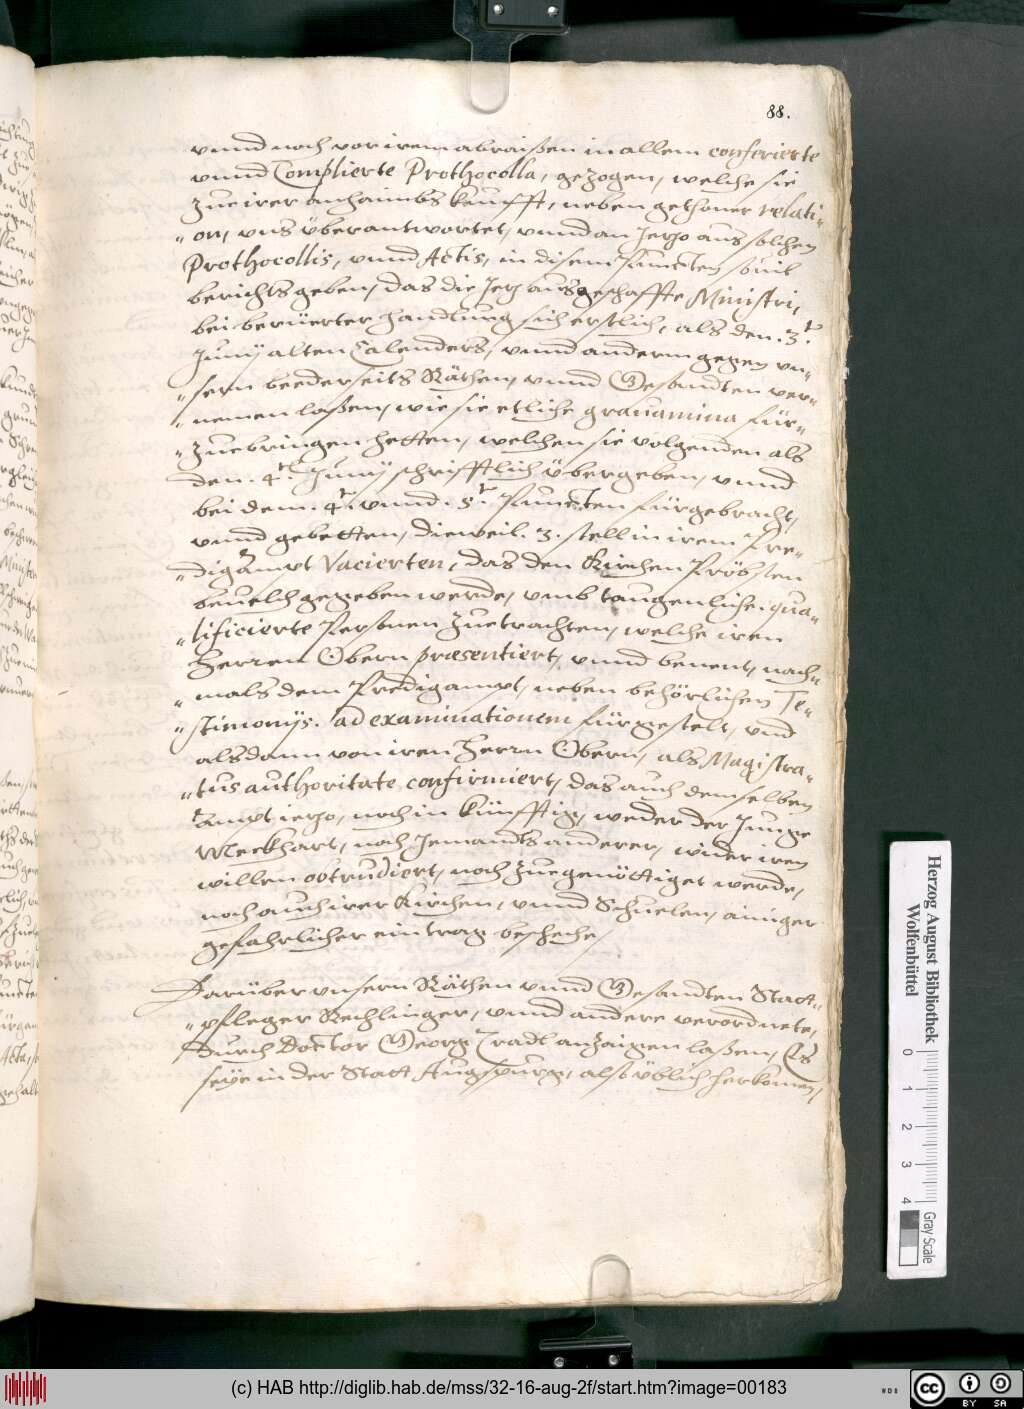 88.
vnnd noch vor irem abraißen in allem conferierte
vnnd Complierte Prothocolla, gezogen, welche sie
zue irer anhaimbs kunfft, neben gethoner relati-
"on, vns überantwortet, vnnd an Jezo aus solchen
Prothocollis, vnnd Actis, in disem Puncten souil
berichts geben, das die Jez ausgeschaffte Ministri,
bei berüerter handlung sich erstlich, als den .3.t
Junij alten Calenders, vnnd anderm gegen vn-
"sern beederseits Räthen, vnnd Gesandten ver-
"nemen laßen, wie sie etliche grauamina für-
"zuebringen hetten, welchen sie volgenden als
den .4.t Junij schrifftlich übergeben, vnnd
bei dem .4.t vnnd .5.t Puncten fürgebracht,
vnnd gebetten, dieweil .3. stell in irem Pre-
"digampt Vacierten, das den Kirchen Pröbsten
beuelch gegeben werde, vmb taugenliche, qua-
"lificierte Personen zue trachten, welche iren
Herren Obern præsentiert, vnnd benent, nach-
"mals dem Predigampt, neben behörlichen Te-
"stimonijs. ad examinationem fürgestelt, vnd
alsdann von iren Herrn Obern, als Magistra-
"tus authoritate confirmiert, das auch demselben
ampt iezo, noch in künfftig, weder der Junge
Meckhart, noch Jemandts anderer, wider iren
willen obtrudiert, noch zuegenöttiget werde,
noch auch irer Kirchen, vnnd Schuelen, ainiger
gefahrlicher eintrag beschehe,
Darüber vnsern Räthen vnnd Gesandten Statt-
"pfleger Rechlinger, vnnd andere verordnete,
durch Doctor Georg Tradl anzaigen laßen, Es
seye in der Statt Augspurg, also üblich herkomen,
Herzog August Bibliothek
Wolfenbüttel
0 1 2 3 4
Gray Scale
(c) HAB http://diglib.hab.de/mss/32-16-aug-2f/start.htm?image=00183
WDB
cc BY SA